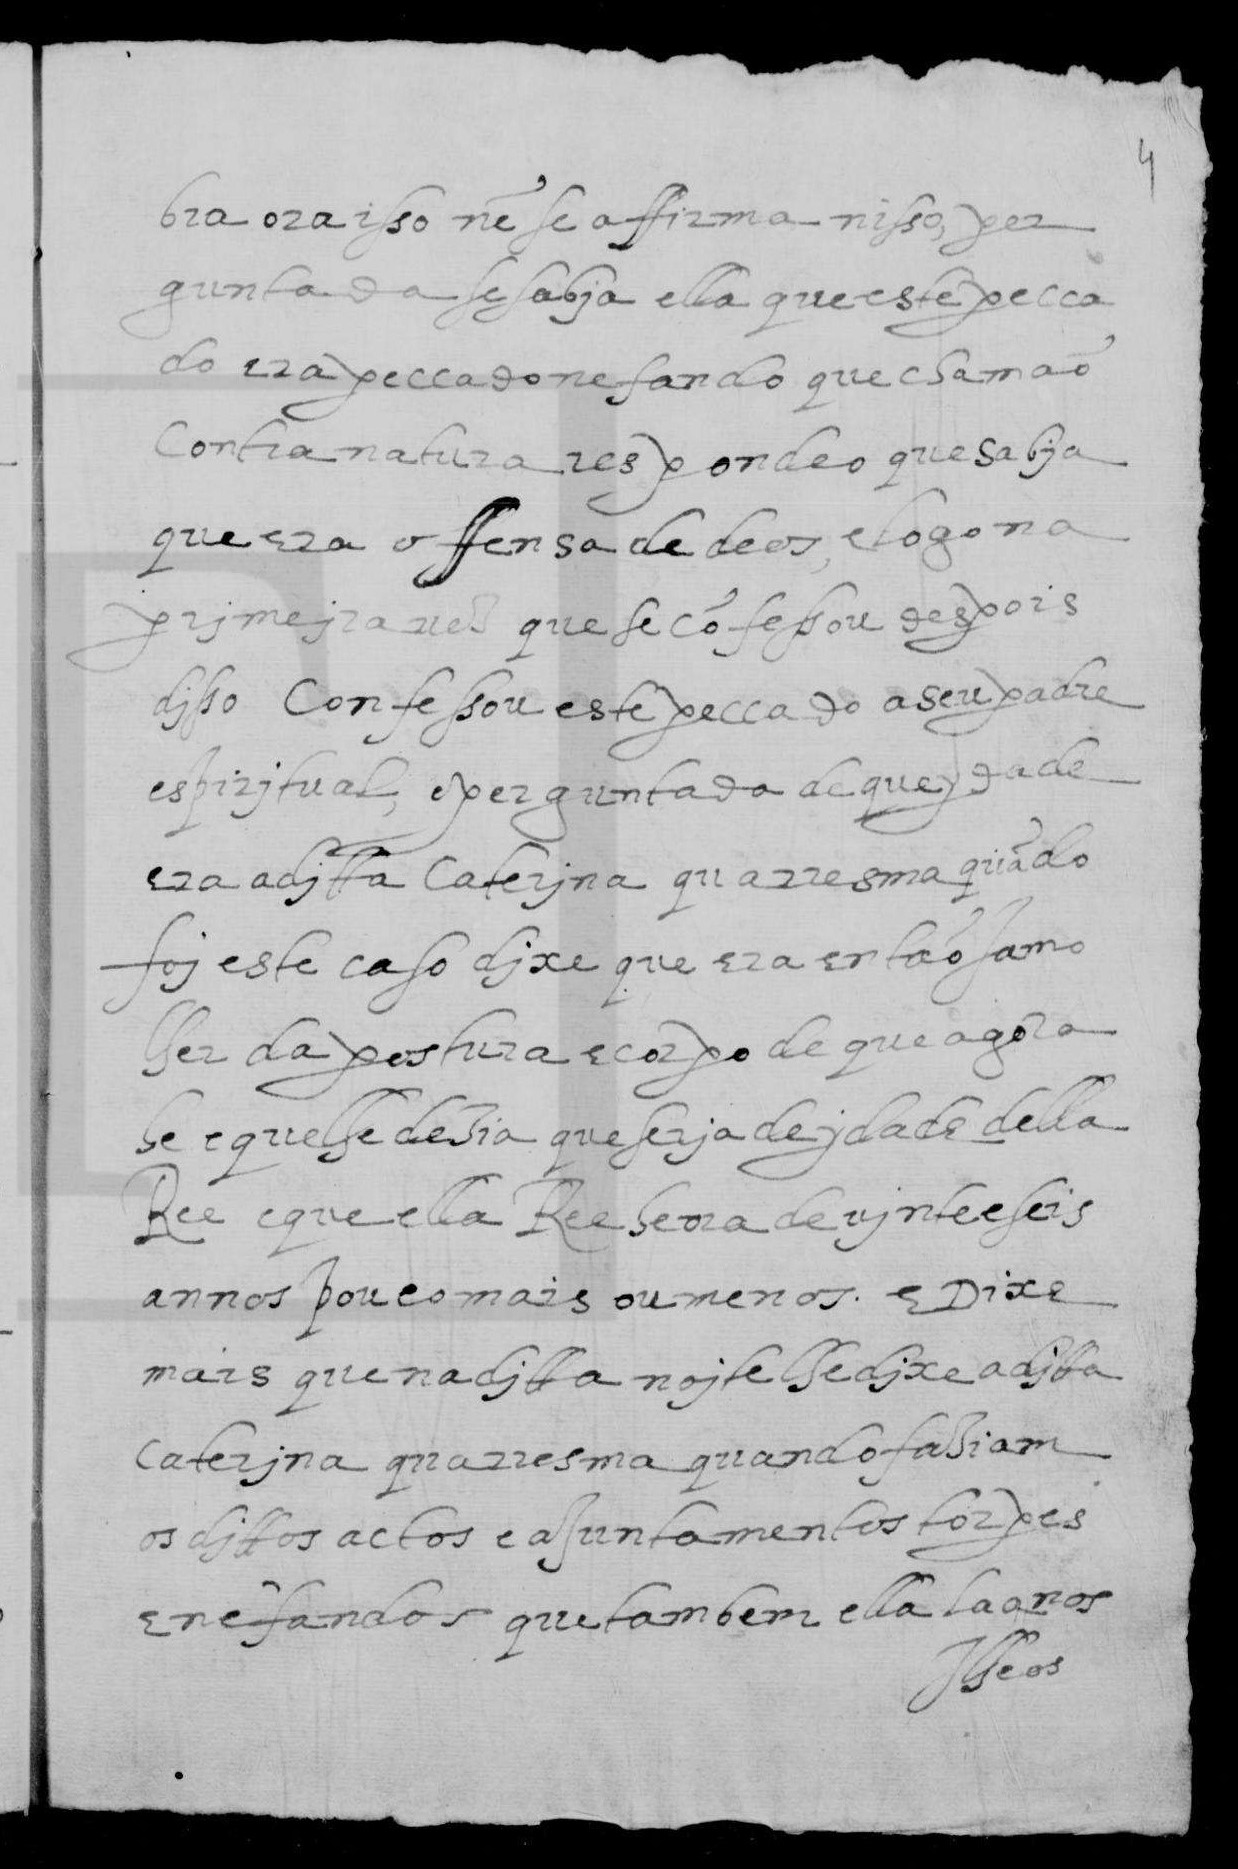 4
bra ora isso nẽ se affirma nisso, per
guntada se sabja ella que este pecca
do era peccado nefando que chamaõ
contra natura respondeo que sabja
que era offensa de deos, e logo na
prjmejra uez que se cõfessou despois
djsso Confessou este peccado a seu padre
espirjtual, e perguntada de que ydade
era a djtta Caterjna quaresma quãdo
foj este caso djxe que era entaõ ja mo
lher da postura e corpo de que agora
he e que lhe dezia que serja de ydade della
Ree e que ella Ree hera de ujnte e seis
annos pouco mais ou menos. e Dixe
mais que na djtta nojte lhe djxe a djtta
Caterjna quaresma quando faziam
os djttos actos e ajuntamentos torpes
e nefandos que tambem ella la nos
Ilheos